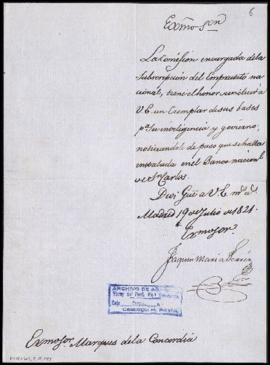 6
Exmo Sor
La Comision encargada de la
Subscripcion del Emprestito na
cional, tiene el honor remitir á
V.E. un Exemplar de sus bases
pa su inteligencia y govierno,
noticiandole de paso que se halla
instalada en el Banco nacional
de Sn Carlos.
Dios gue a V.E. ms as
Madrid 19 de Julio de 1821.
Exmo sor
Joaquin Maria
ARCHIVO DE
Exmo sor Marques de la Concordia